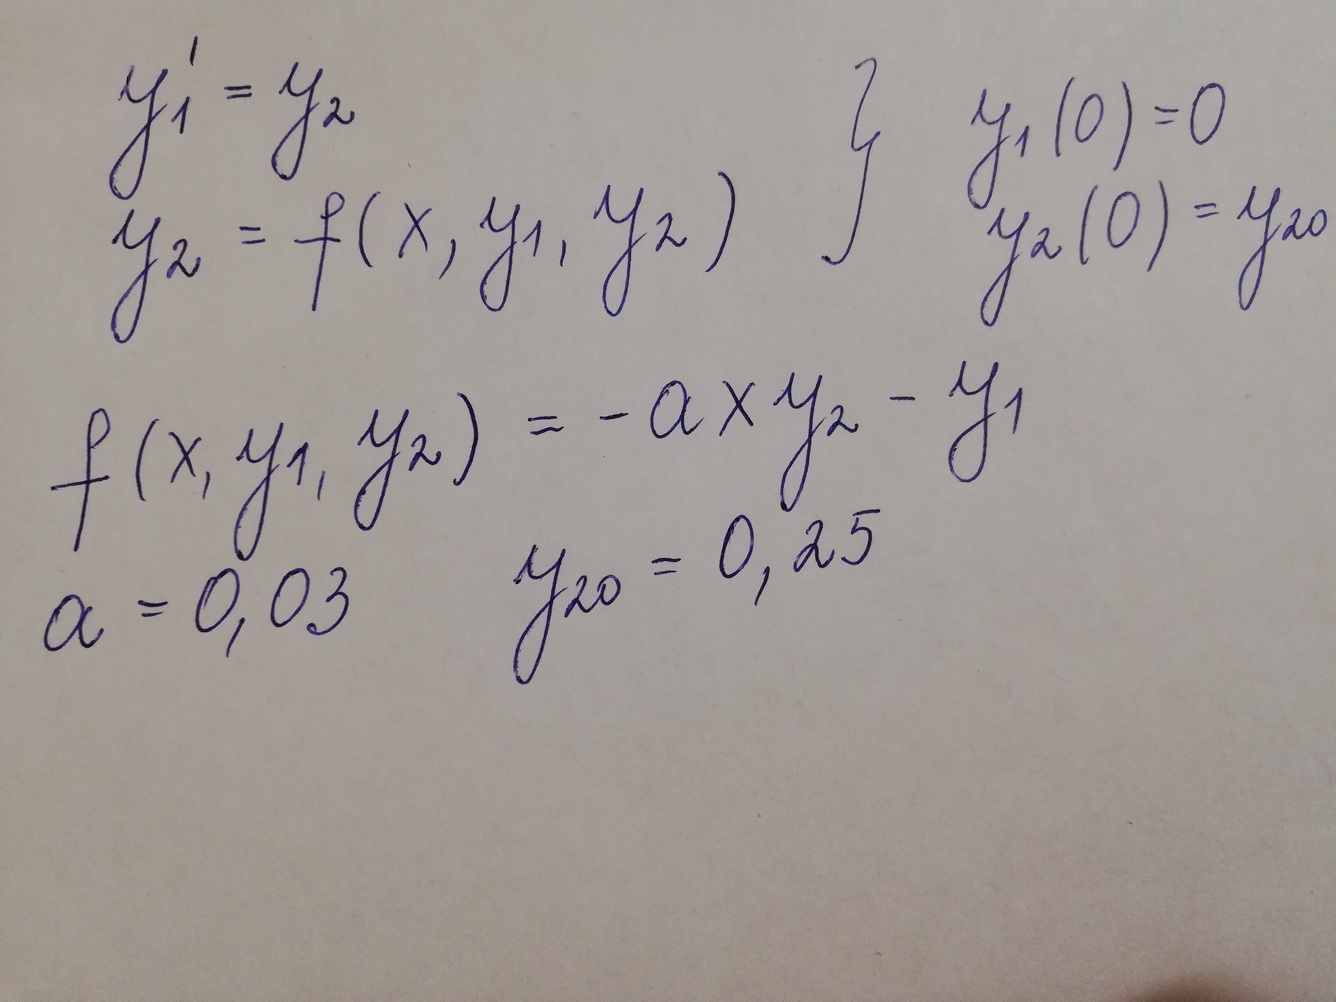 y₁' = y₂ } y₁(0) = 0
y₂ = f(x, y₁, y₂) y₂(0) = y₂₀
f(x, y₁, y₂) = -a x y₂ - y₁
a = 0,03 y₂₀ = 0,25